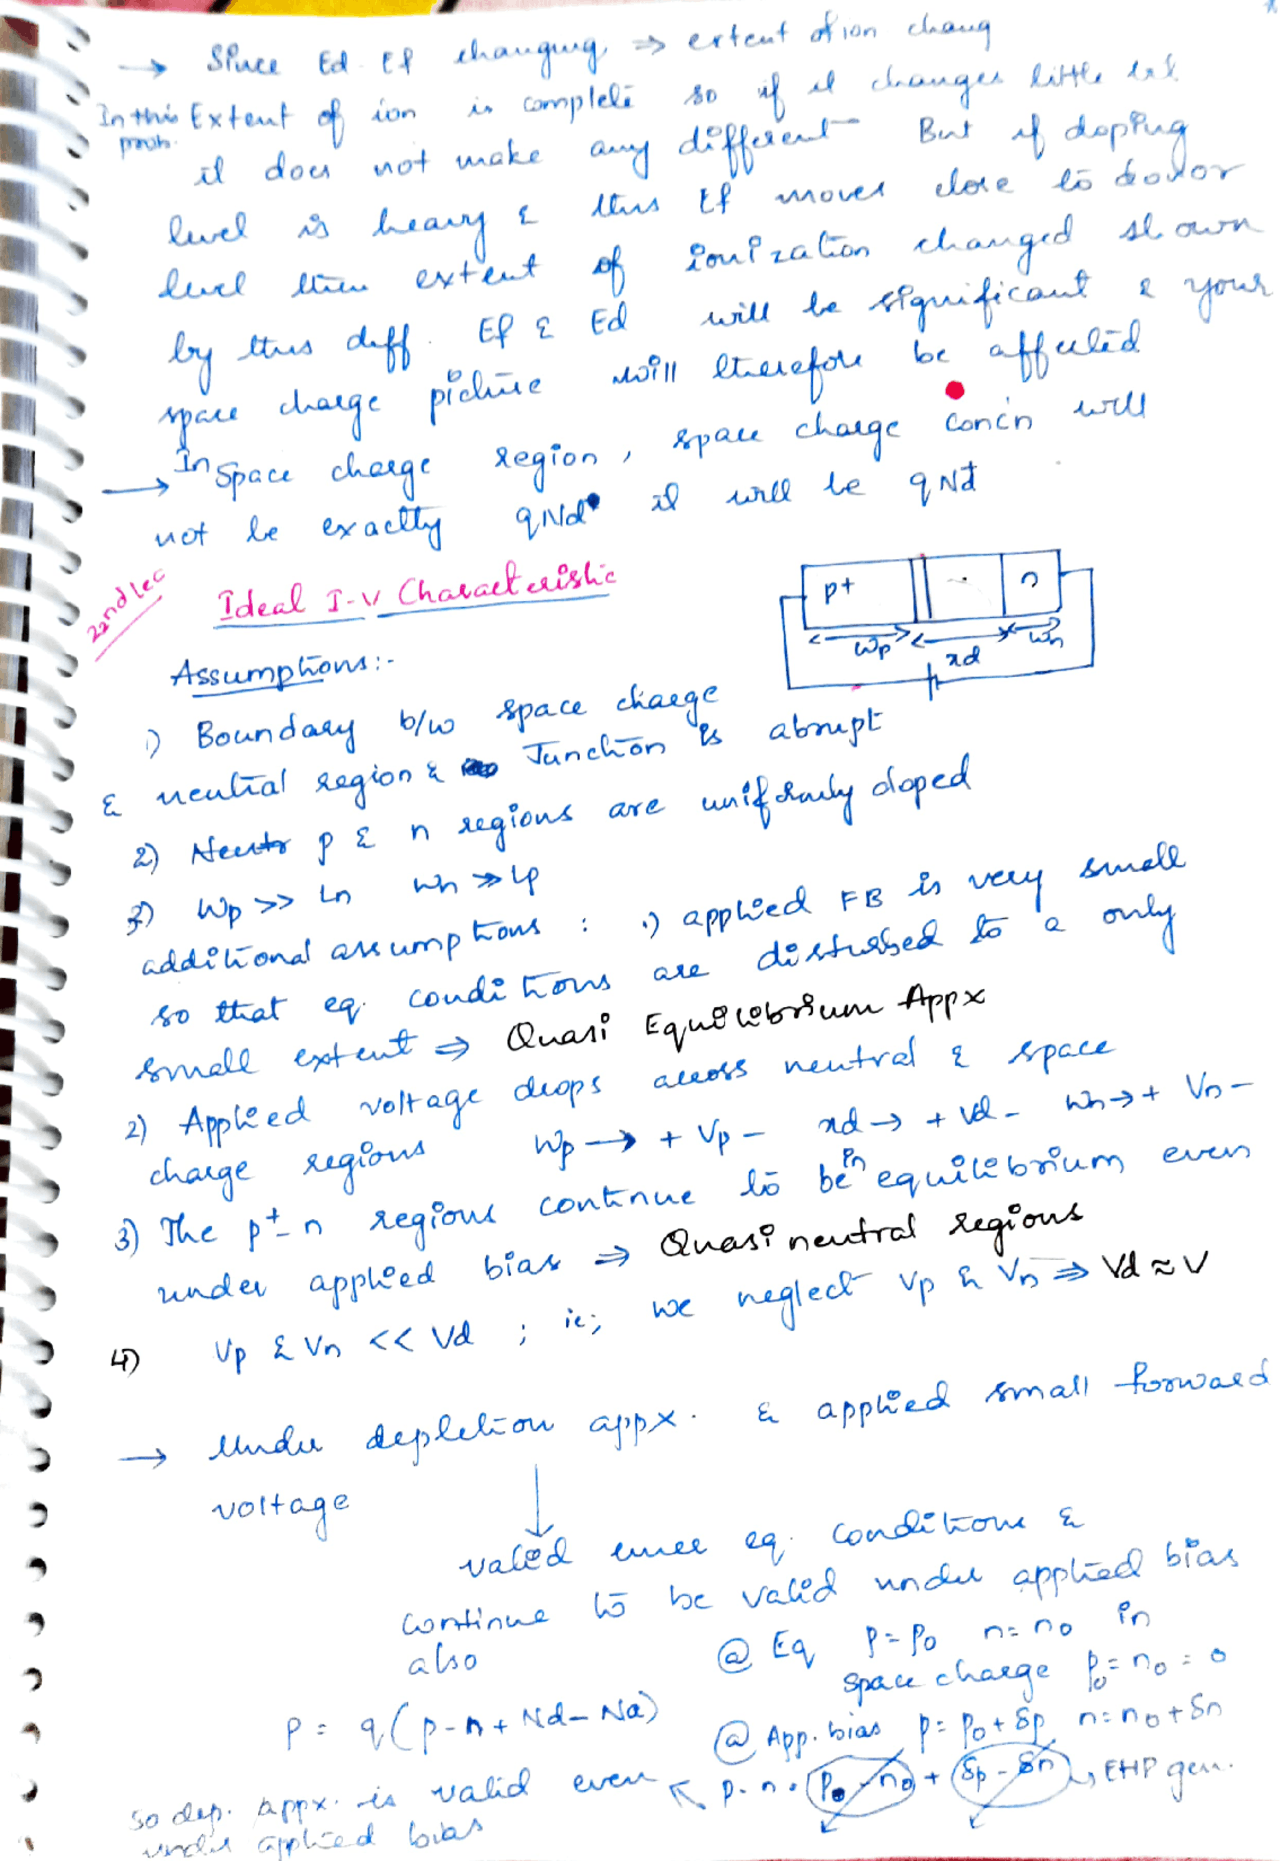 → Since Ed Ef changing ⇒ extent of ion chang
In this prob. Extent of ion is complete so if it changes little bit
it does not make any different But if doping
level is heavy & thus Ef moves close to donor
level then extent of ionization changed shown
by this diff. Ef & Ed will be significant & your
space charge picture will therefore be affected
→ In space charge region, space charge concn will
not be exactly qNd it will be qNd⁺
22nd lec
Ideal I-V Characteristic
p+ n
Wp xd Wn
Assumptions:-
1) Boundary b/w space charge
& neutral region & Junction is abrupt
2) p & n regions are uniformly doped
3) Wp >> Ln Wn >> Lp
additional assumptions : 1) applied FB is very small
so that eq. conditions are disturbed to a only
small extent ⇒ Quasi Equilibrium Appx
2) Applied voltage drops across neutral & space
charge regions Wp → + Vp - xd → + Vd - Wn → + Vn -
3) The p⁺-n regions continue to be in equilibrium even
under applied bias ⇒ Quasi neutral regions
4) Vp & Vn << Vd ; ie; we neglect Vp & Vn ⇒ Vd ≈ V
→ Under depletion appx. & applied small forward
voltage
valid since eq. conditions &
continue to be valid under applied bias
also
@ Eq p = p₀ n = n₀ in
space charge p₀ = n₀ = 0
ρ = q(p-n+Nd-Na)
@ App. bias p = p₀ + δp n = n₀ + δn
so dep. appx. is valid even ↖ p-n = p₀ - n₀ + δp - δn → EHP gen.
under applied bias